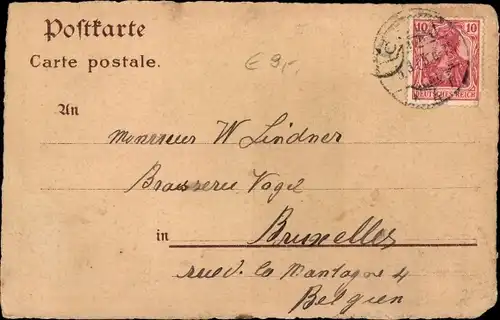 Postkarte
Carte postale.
€ 9,-
10 10
DEUTSCHES REICH
An
Monsieur W Lindner
Brasserie Vogel
in Bruxelles
rue d. la Montagne 4
Belgien